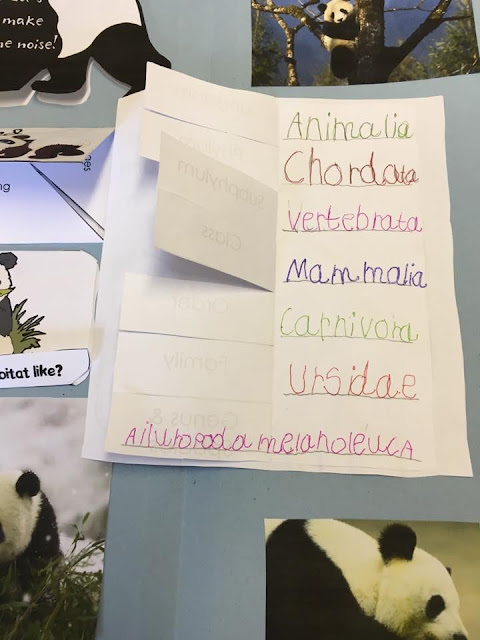 make
noise!
Animalia
Phylum
Chordata
Subphylum
Vertebrata
Class
Mammalia
Order
Carnivora
Family
Ursidae
Genus &
Ailuropoda melanoleucA
like?